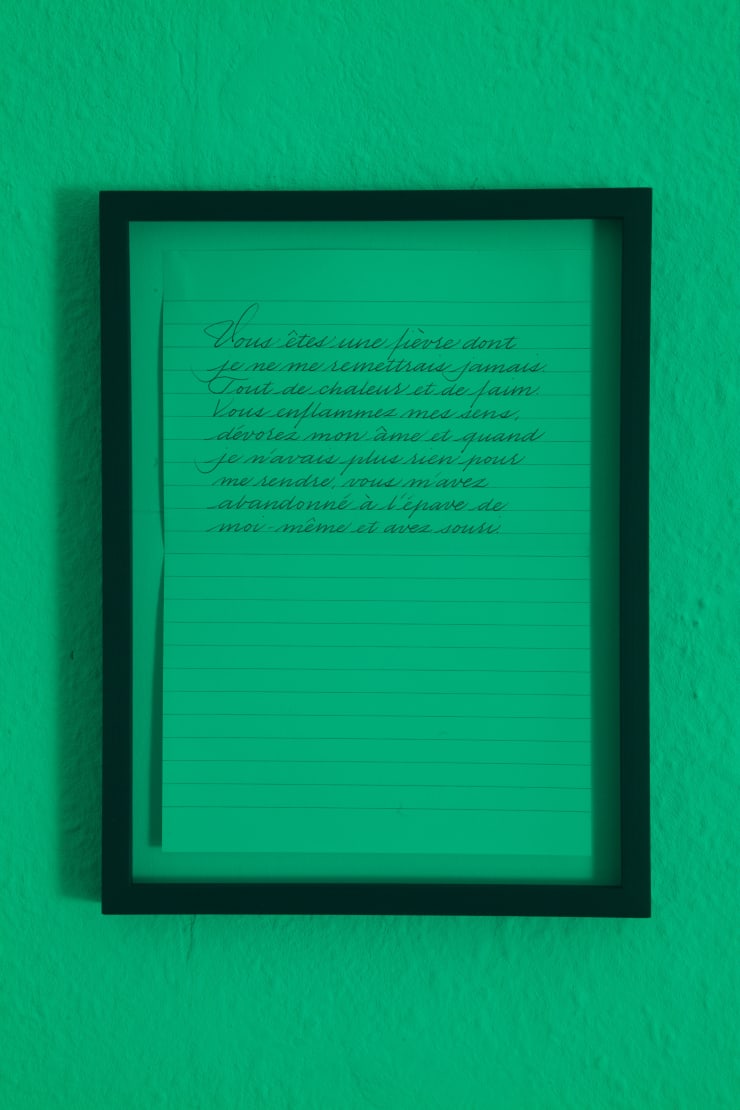 Vous êtes une fièvre dont
je ne me remettrais jamais.
Tout de chaleur et de faim.
Vous enflammez mes sens,
dévorez mon âme et quand
je n'avais plus rien pour
me rendre, vous m'avez
abandonné à l'épave de
moi-même et avez souri.